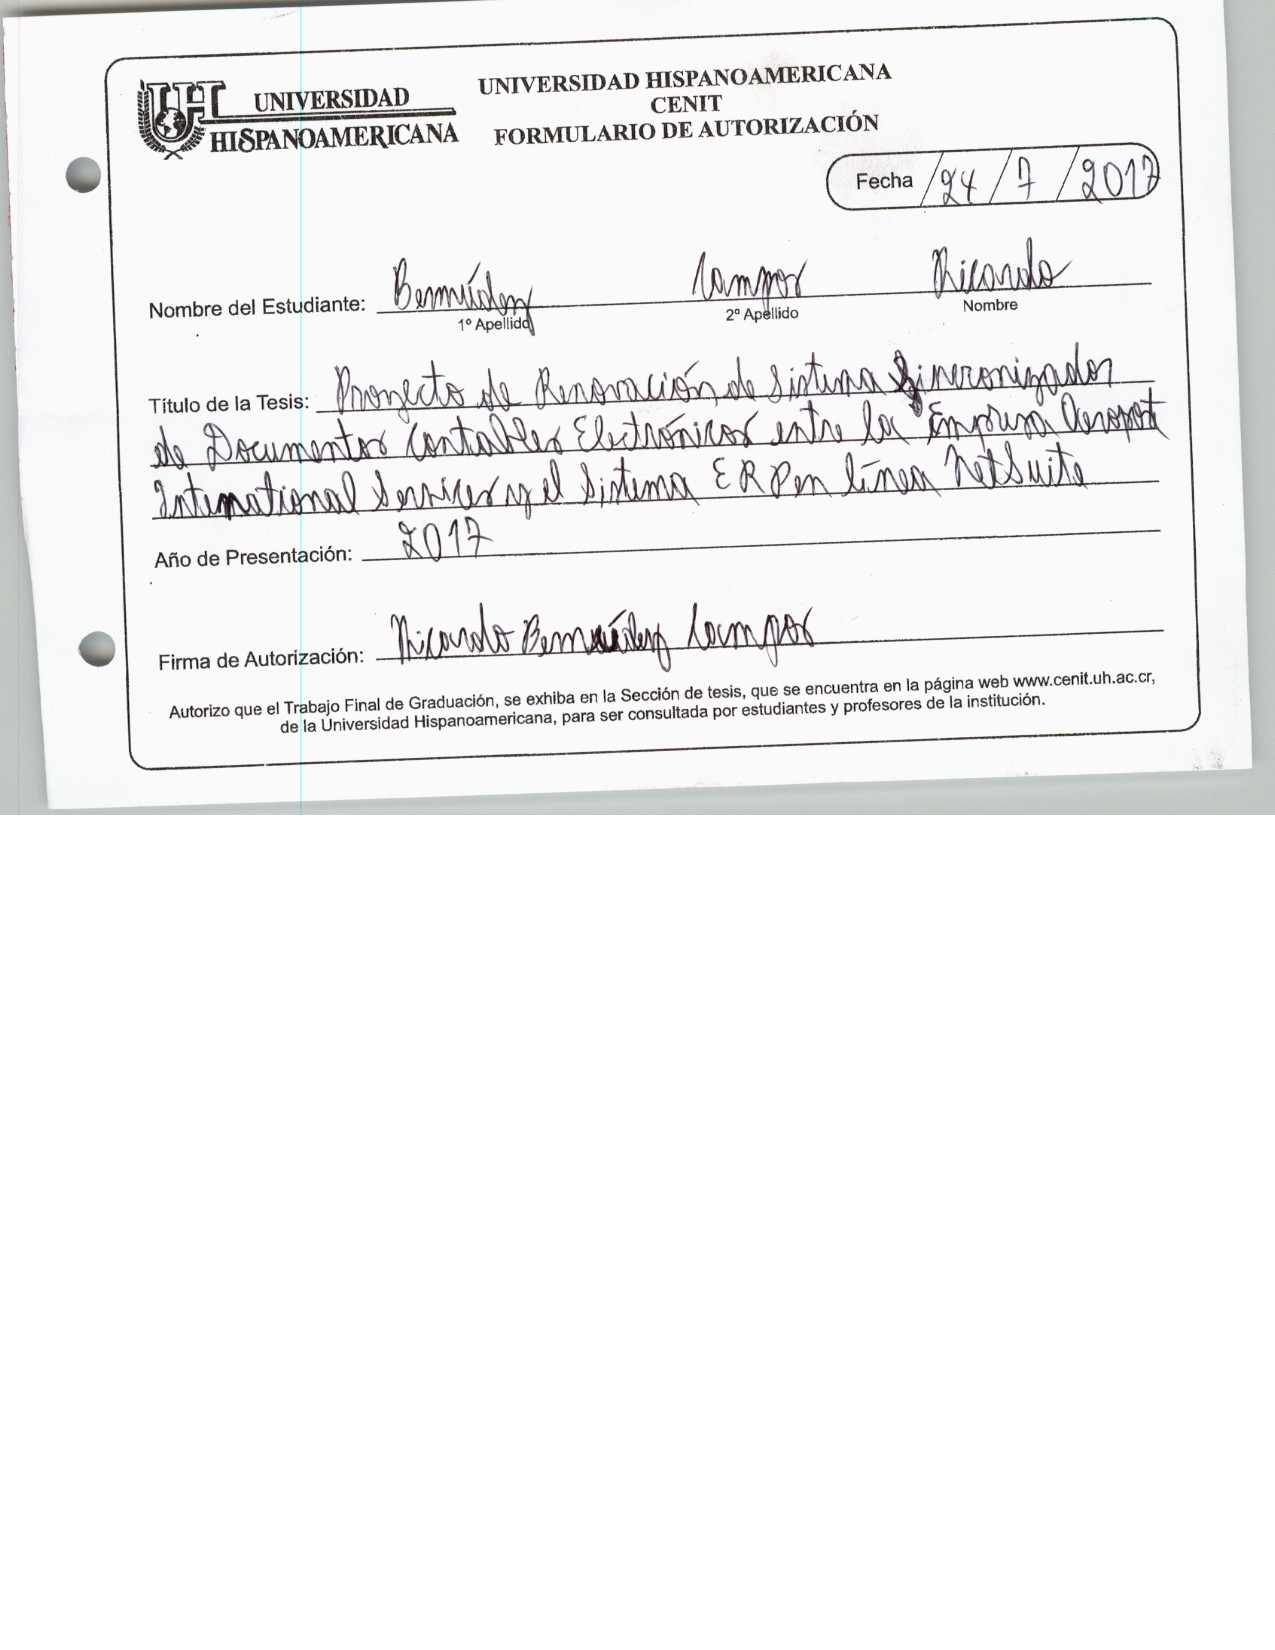 UNIVERSIDAD
HISPANOAMERICANA
UNIVERSIDAD HISPANOAMERICANA
CENIT
FORMULARIO DE AUTORIZACIÓN
Fecha /24/7/2017
Nombre del Estudiante: Bermúdez Campos Ricardo
1º Apellido 2º Apellido Nombre
Título de la Tesis: Proyecto de Renovación de Sistema Sincronizador
de Documentos Contables Electrónicos entre la Empresa Aeropost
International Services y el Sistema ERP en línea NetSuite
Año de Presentación: 2017
Firma de Autorización: Ricardo Bermúdez Campos
Autorizo que el Trabajo Final de Graduación, se exhiba en la Sección de tesis, que se encuentra en la página web www.cenit.uh.ac.cr,
de la Universidad Hispanoamericana, para ser consultada por estudiantes y profesores de la institución.